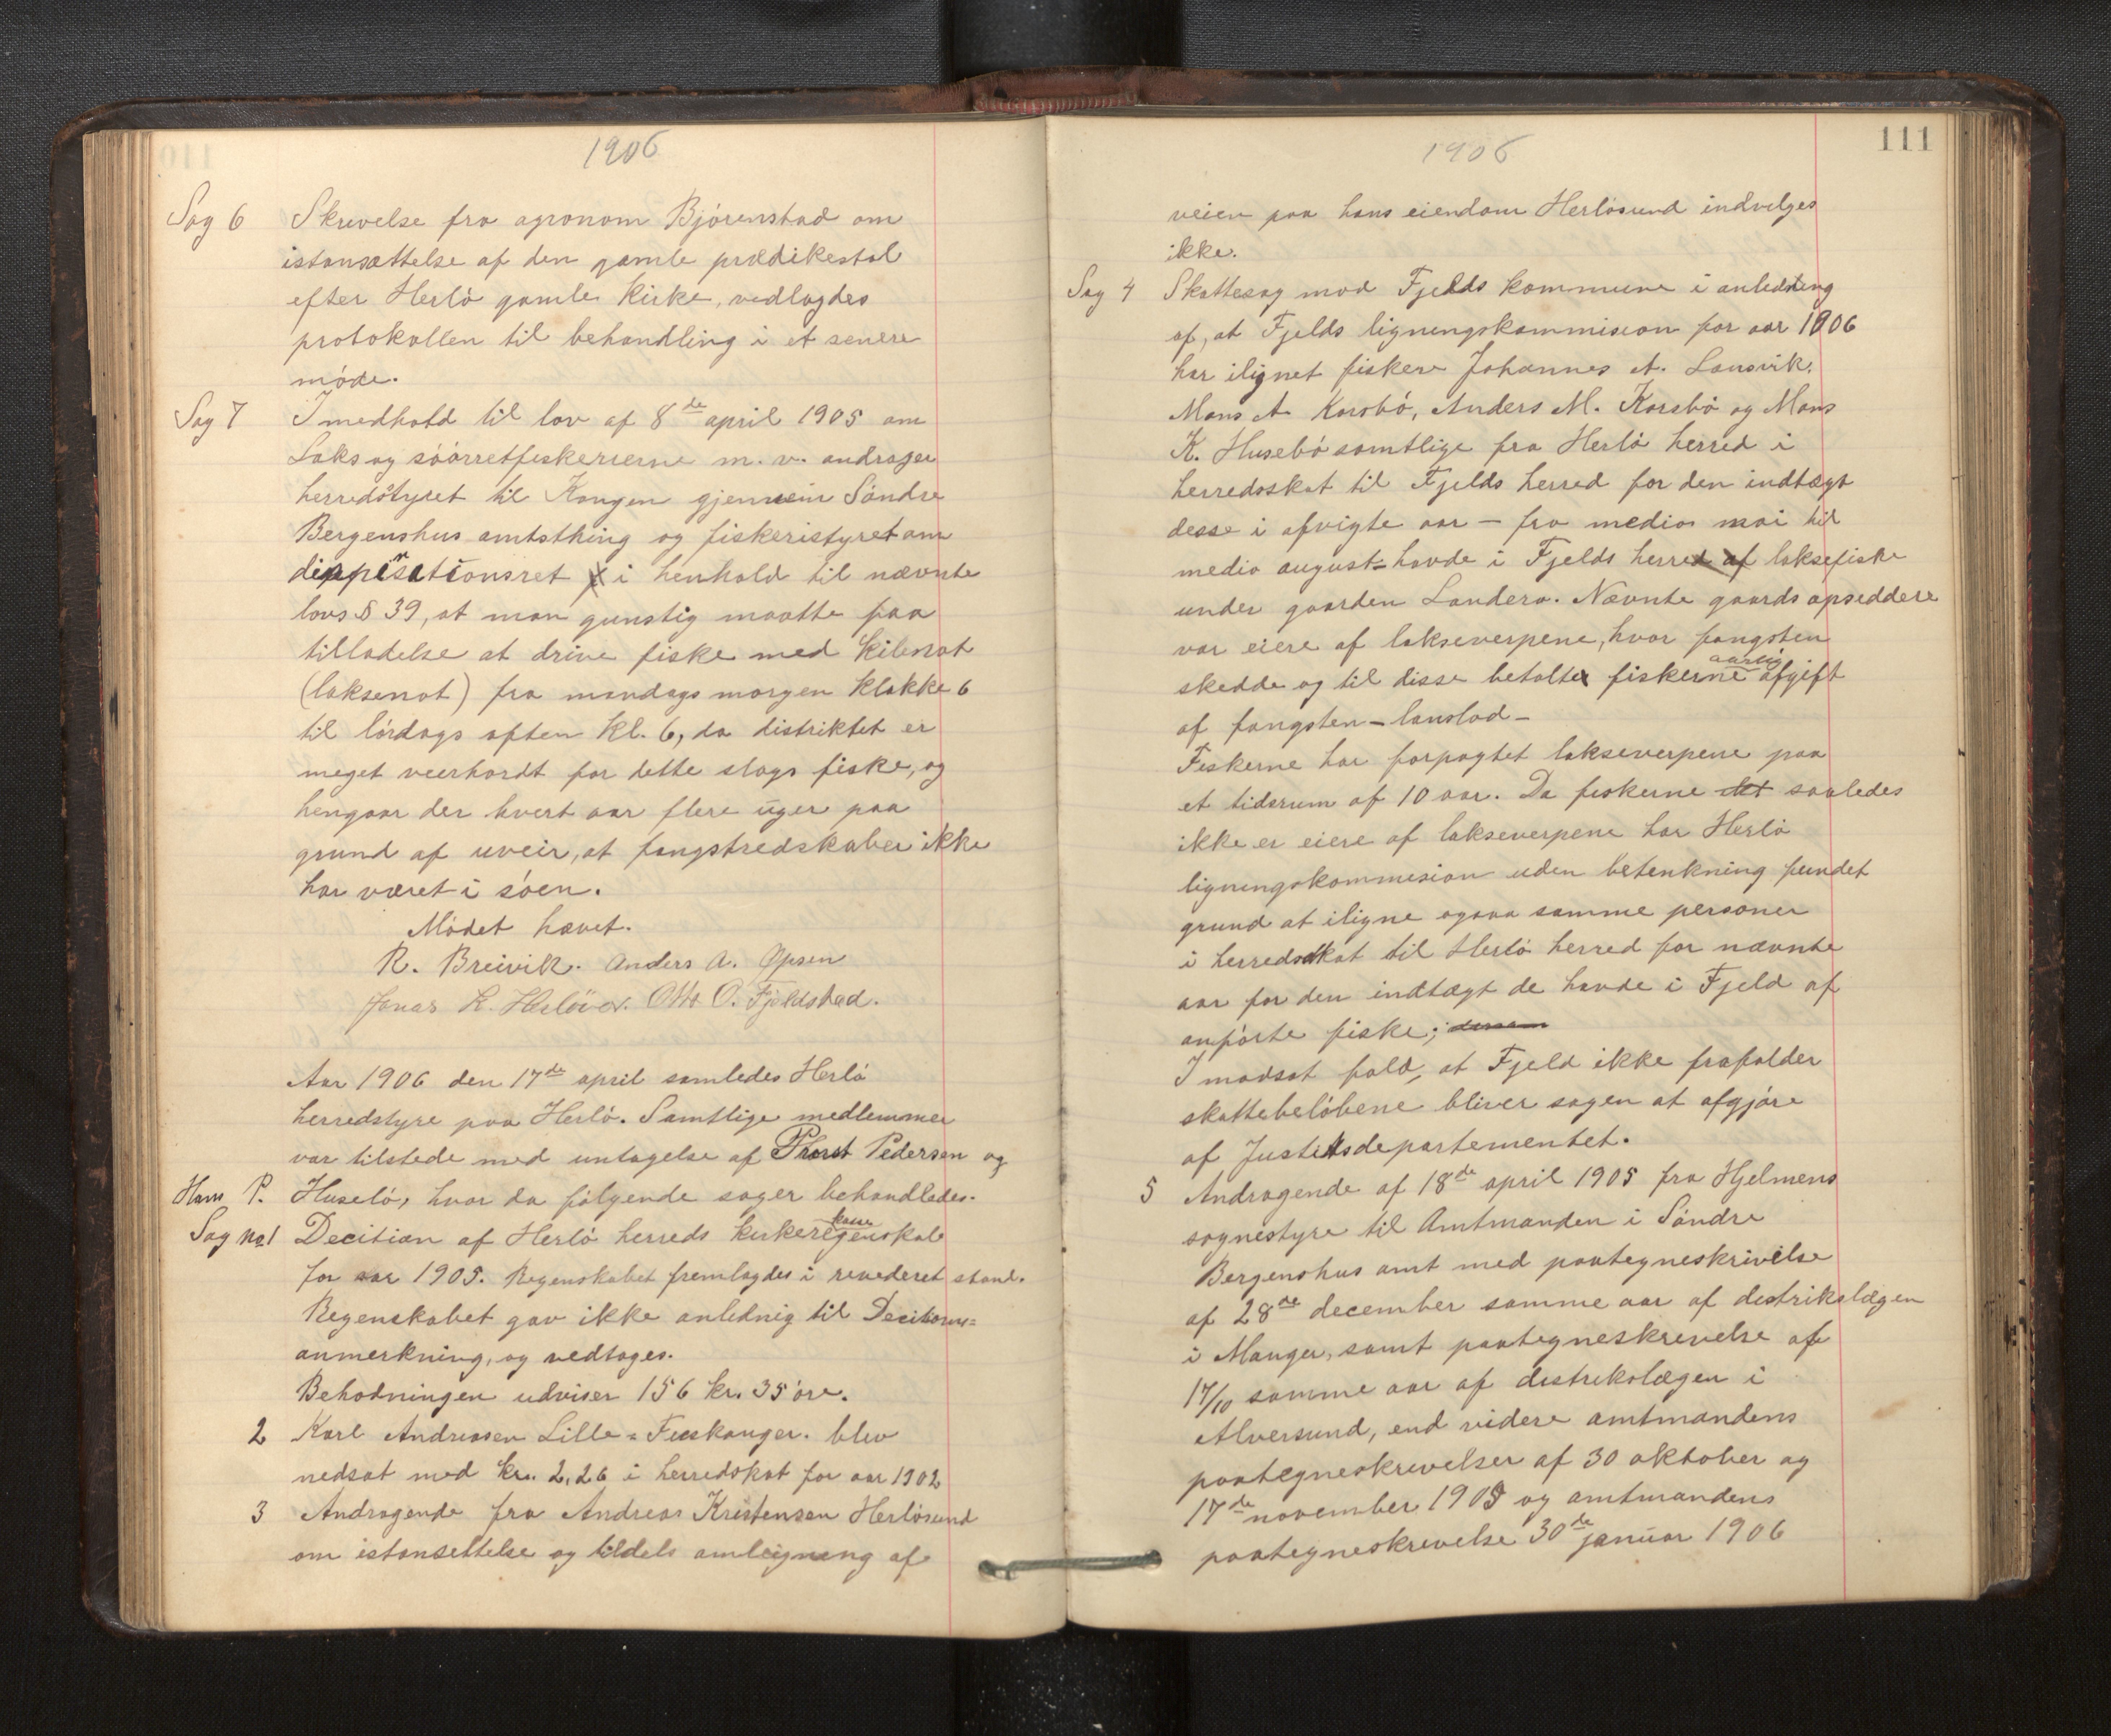 1906
Sag 6 Skrivelse fra agronom Björenstad om
istansættelse af den gamle prædikestol
efter Herlö gamle Kirke, vedlagdes
protokollen til behandling i et senere
möde.
Sag 7 I medhold til lov af 8de april 1905 om
Laks og söörretfiskerierne m. v. andrager
herredstyret til Kongen gjennem Söndre
Bergenshus amtsthing og fiskeristyret om
dispensationsret i henhold til nævnte
lovs § 39, at man gunstig maatte faa
tilladelse at drive fiske med Kilenot
(laksenot) fra mandags morgen Klokke 6
til lördags aften Kl. 6, da distriktet er
meget veerhardt for dette slags fiske, og
hengaar der hvert aar flere uger paa
grund af uveir, at fangstredskaber ikke
har været i söen.
Mödet hævet.
R. Breivik. Anders A. Opsen
Jonas K. Herlöver. Otto O. Fjeldstad.
Aar 1906 den 17de april samledes Herlö
herredstyre paa Herlö. Samtlige medlemmer
var tilstede med untagelse af Provst Pedersen og
Hans P. Huselö, hvor da fölgende sager behandledes.
Sag no 1 Decition af Herlö herreds kirkekasseregenskab
for aar 1905. Regenskabet fremlagdes i revederet stand.
Regenskabet gav ikke anlednig til Decitions=
anmerkning, og vedtoges.
Beholdningen udviser 156 kr. 35 öre.
2 Karl Andreasen Lille = Feskanger. blev
nedsat med kr. 2,26 i herredskat for aar 1902
3 Andragende fra Andreas Kristensen Herlösund
om istansettelse og tildels omleigneng af
111
1906
veien paa hans eiendom Herlösund indvilges
ikke.
Sag 4 Skattesag mod Fjelds kommune i anledning
af, at Fjelds ligningskommision for aar 1906
har ilignet fiskere Johannes A. Lansvik,
Mons A Korsbö, Anders M. Korsbö og Mons
K. Husebö samtlige fra Herlö herred i
herredsskat til Fjelds herred for den indtægt
desse i afvigte aar – fra medio mai til
medio august = havde i Fjelds herred af laksefiske
under gaarden Landero. Nævnte gaards opseddere
var eiere af lakseverpene, hvor fangsten
skedde og til disse betalte fiskerne aarlig afgift
af fangsten – lanslod –
Feskerne har forpagtet lakseverpene paa
et tidsrum af 10 aar. Da feskerne det saaledes
ikke er eiere af lakseverpene har Herlö
ligningskommesion uden betenkning fundet
grund at iligne ogsaa samme personer
i herredsskat til Herlö herred for nævnte
aar for den indtægt de havde i Fjeld af
anförte fiske;
I modsat fald, at Fjeld ikke frafalder
skattebelöbene bliver sagen at afgjöre
af Justitsdepartementet.
5 Andragende af 18de april 1905 fra Hjelmens
sognestyre til Amtmanden i Söndre
Bergenshus amt med paategneskrivelse
af 28de december samme aar af destrikslægen
i Manger, samt paategneskrevelse af
17/10 samme aar af destrekslægen i
Alversund, end videre amtmandens
paategneskrevelser af 30 oktober og
17de november 1905 og amtmandens
paategneskrevelse 30de januar 1906